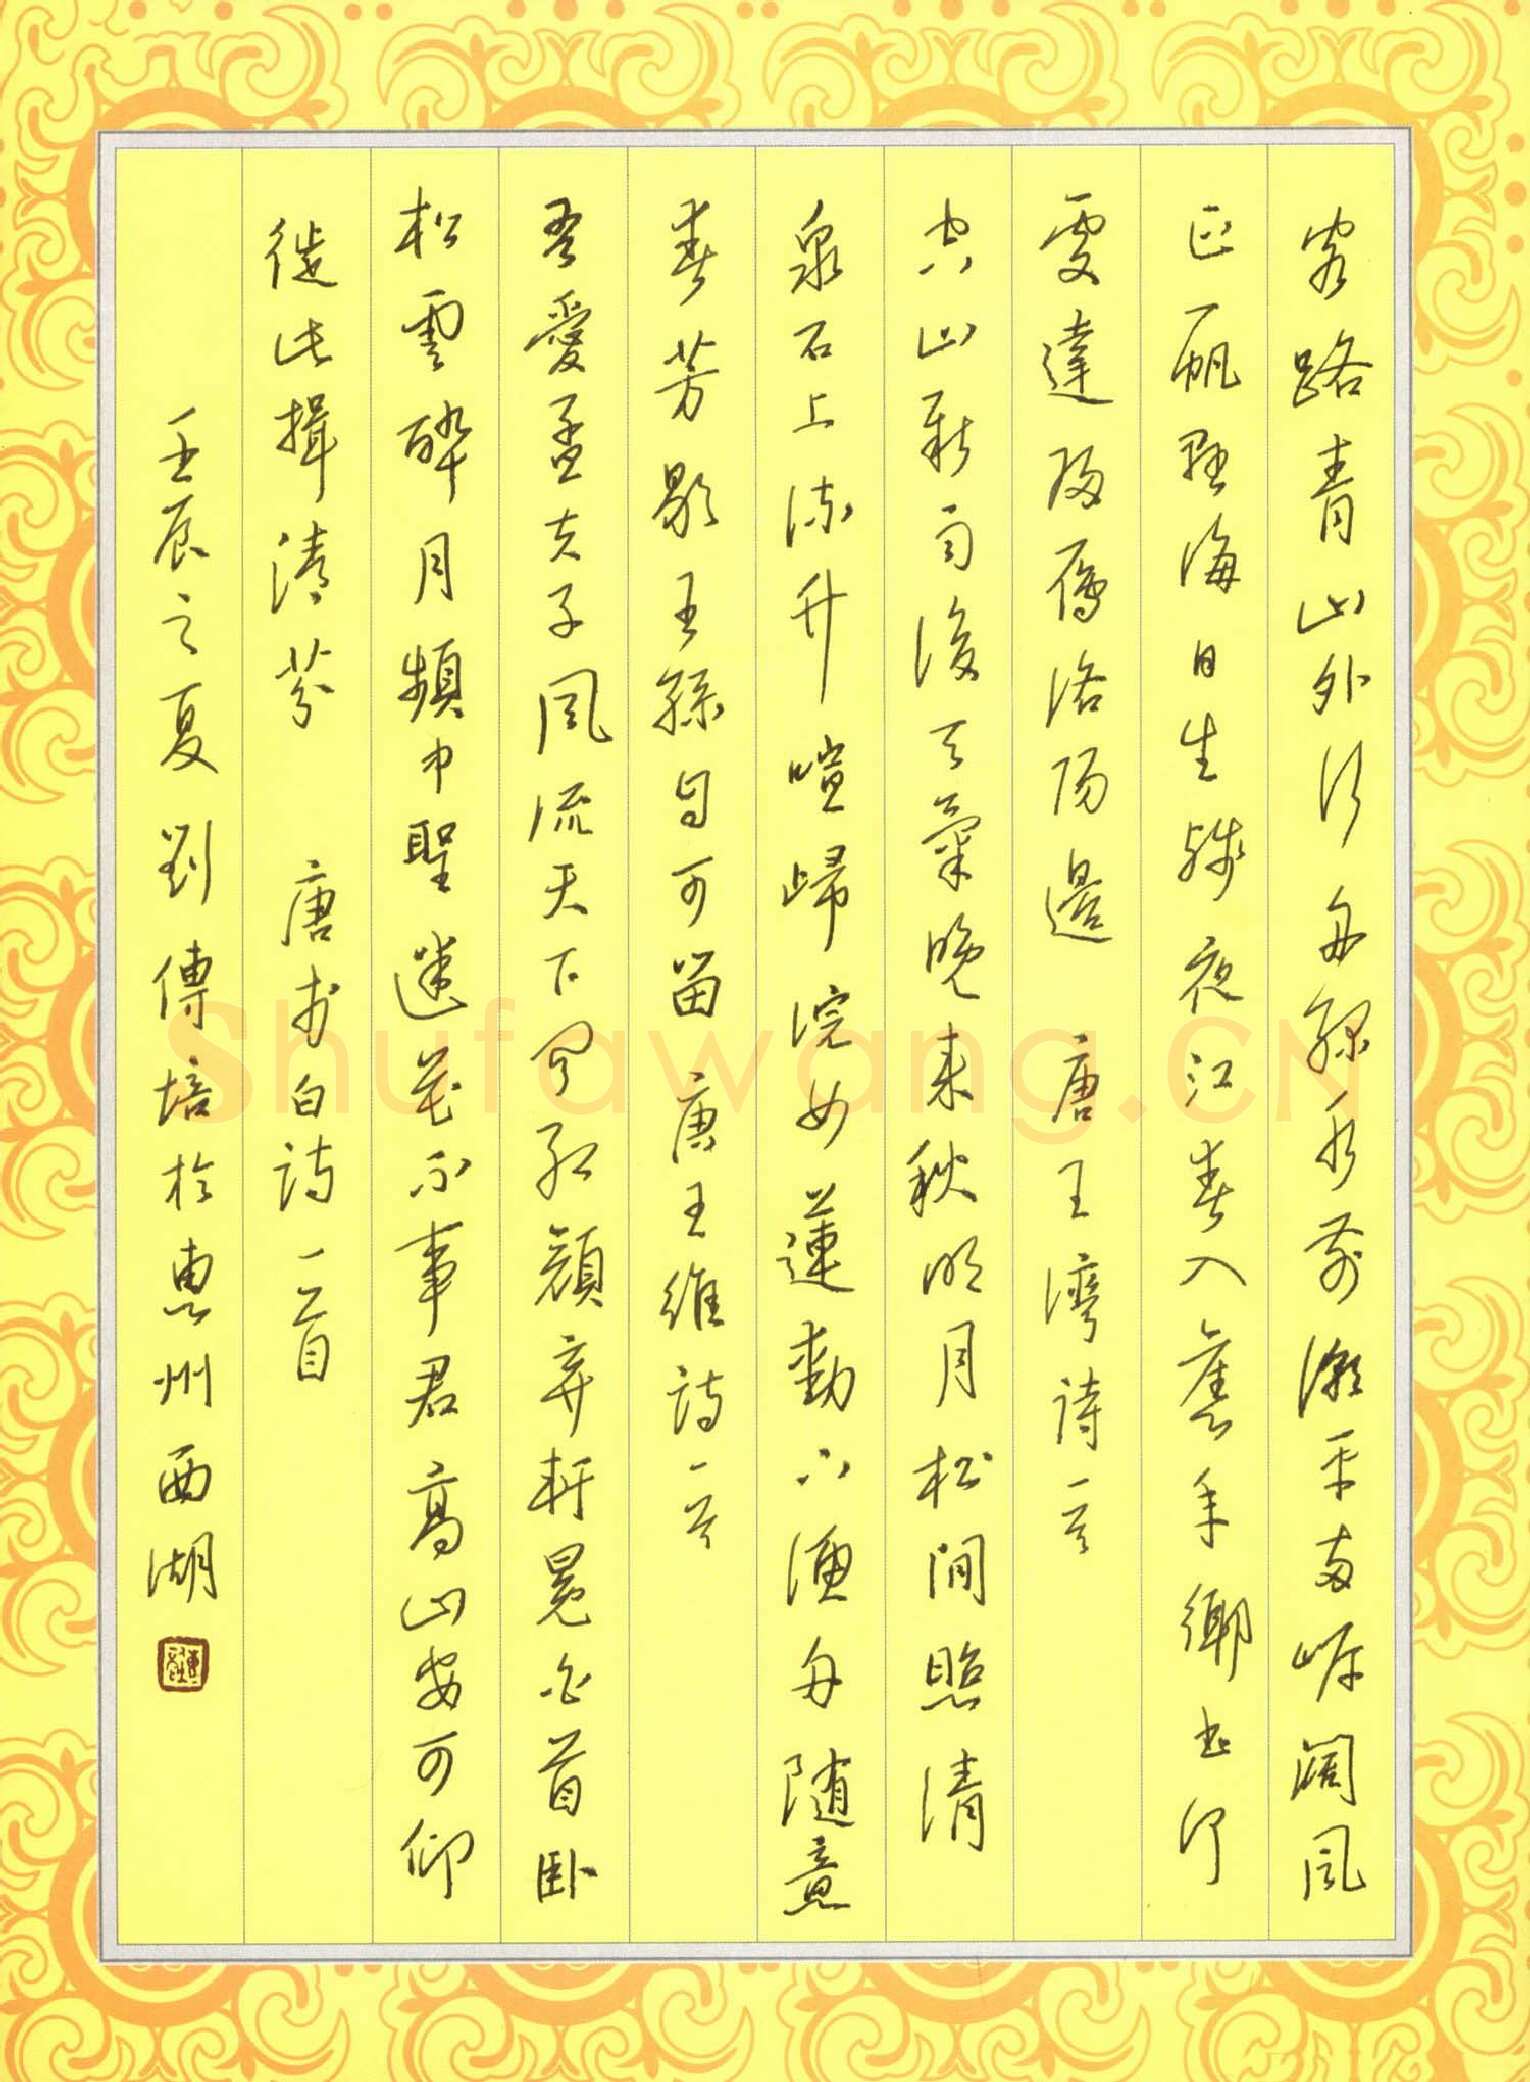 客路青山外行舟綠水前潮平兩岸闊風
正一帆懸海日生殘夜江春入舊年鄉書何
處達歸雁洛陽邊 唐王灣詩一首
空山新雨後天氣晚來秋明月松間照清
泉石上流竹喧歸浣女蓮動下漁舟随意
春芳歇王孫自可留 唐王維詩一首
吾愛孟夫子風流天下聞紅顏弃軒冕白首卧
松雲醉月頻中聖迷花不事君高山安可仰
徒此揖清芬 唐李白詩一首
壬辰之夏劉傳培於惠州西湖
Shufawang.CN